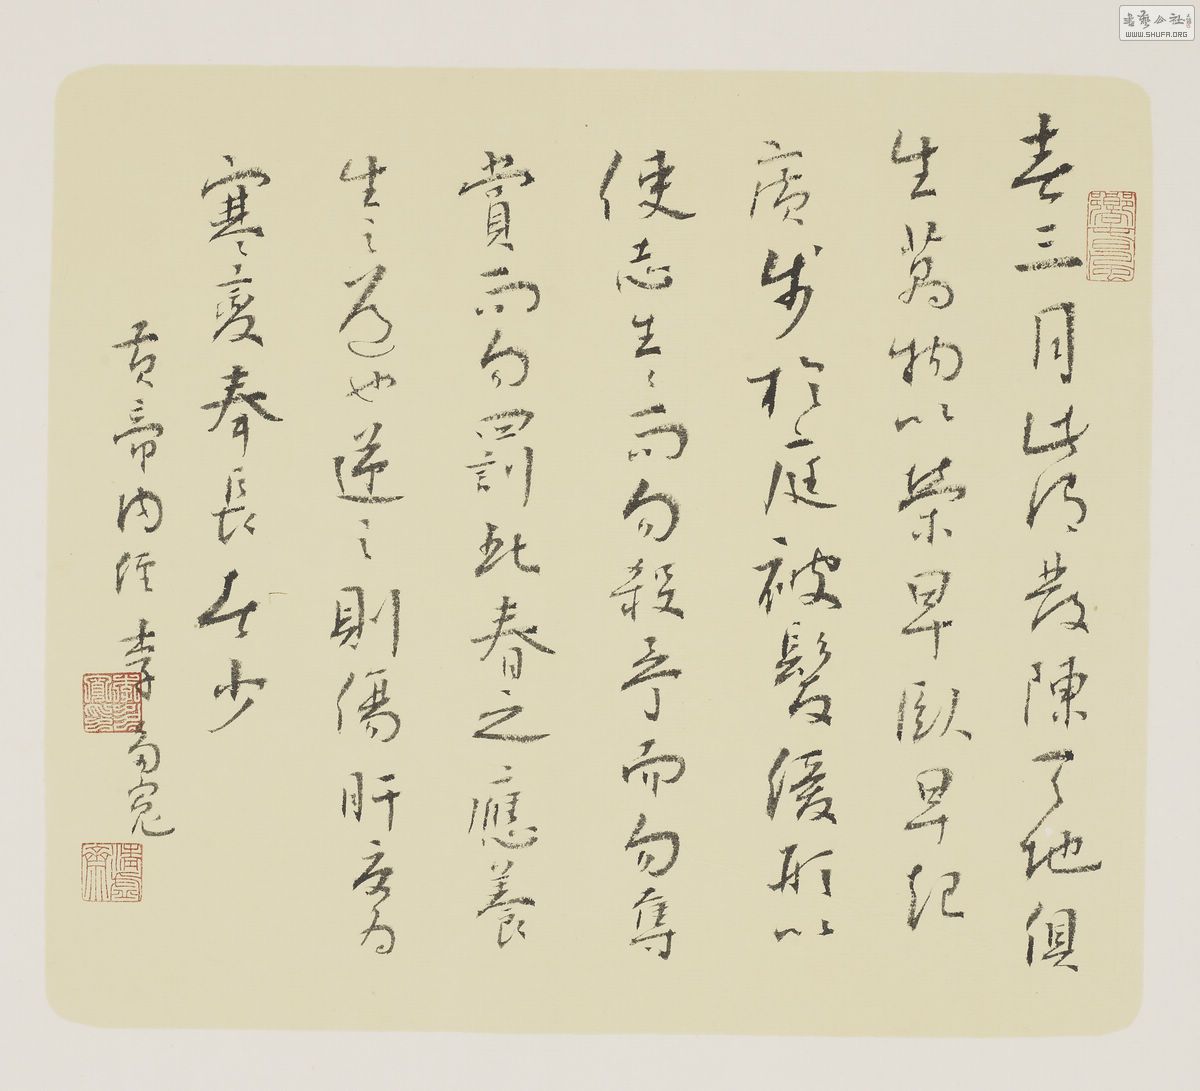 春三月此謂發陳天地俱
生萬物以榮早臥早起
廣步於庭被髮緩形以
使志生〻而勿殺予而勿奪
賞而勿罰此春之應養
生之道也逆之則傷肝夏為
寒〻變奉長者少
黃帝內經 李
書藝公社
WWW.SHUFA.ORG